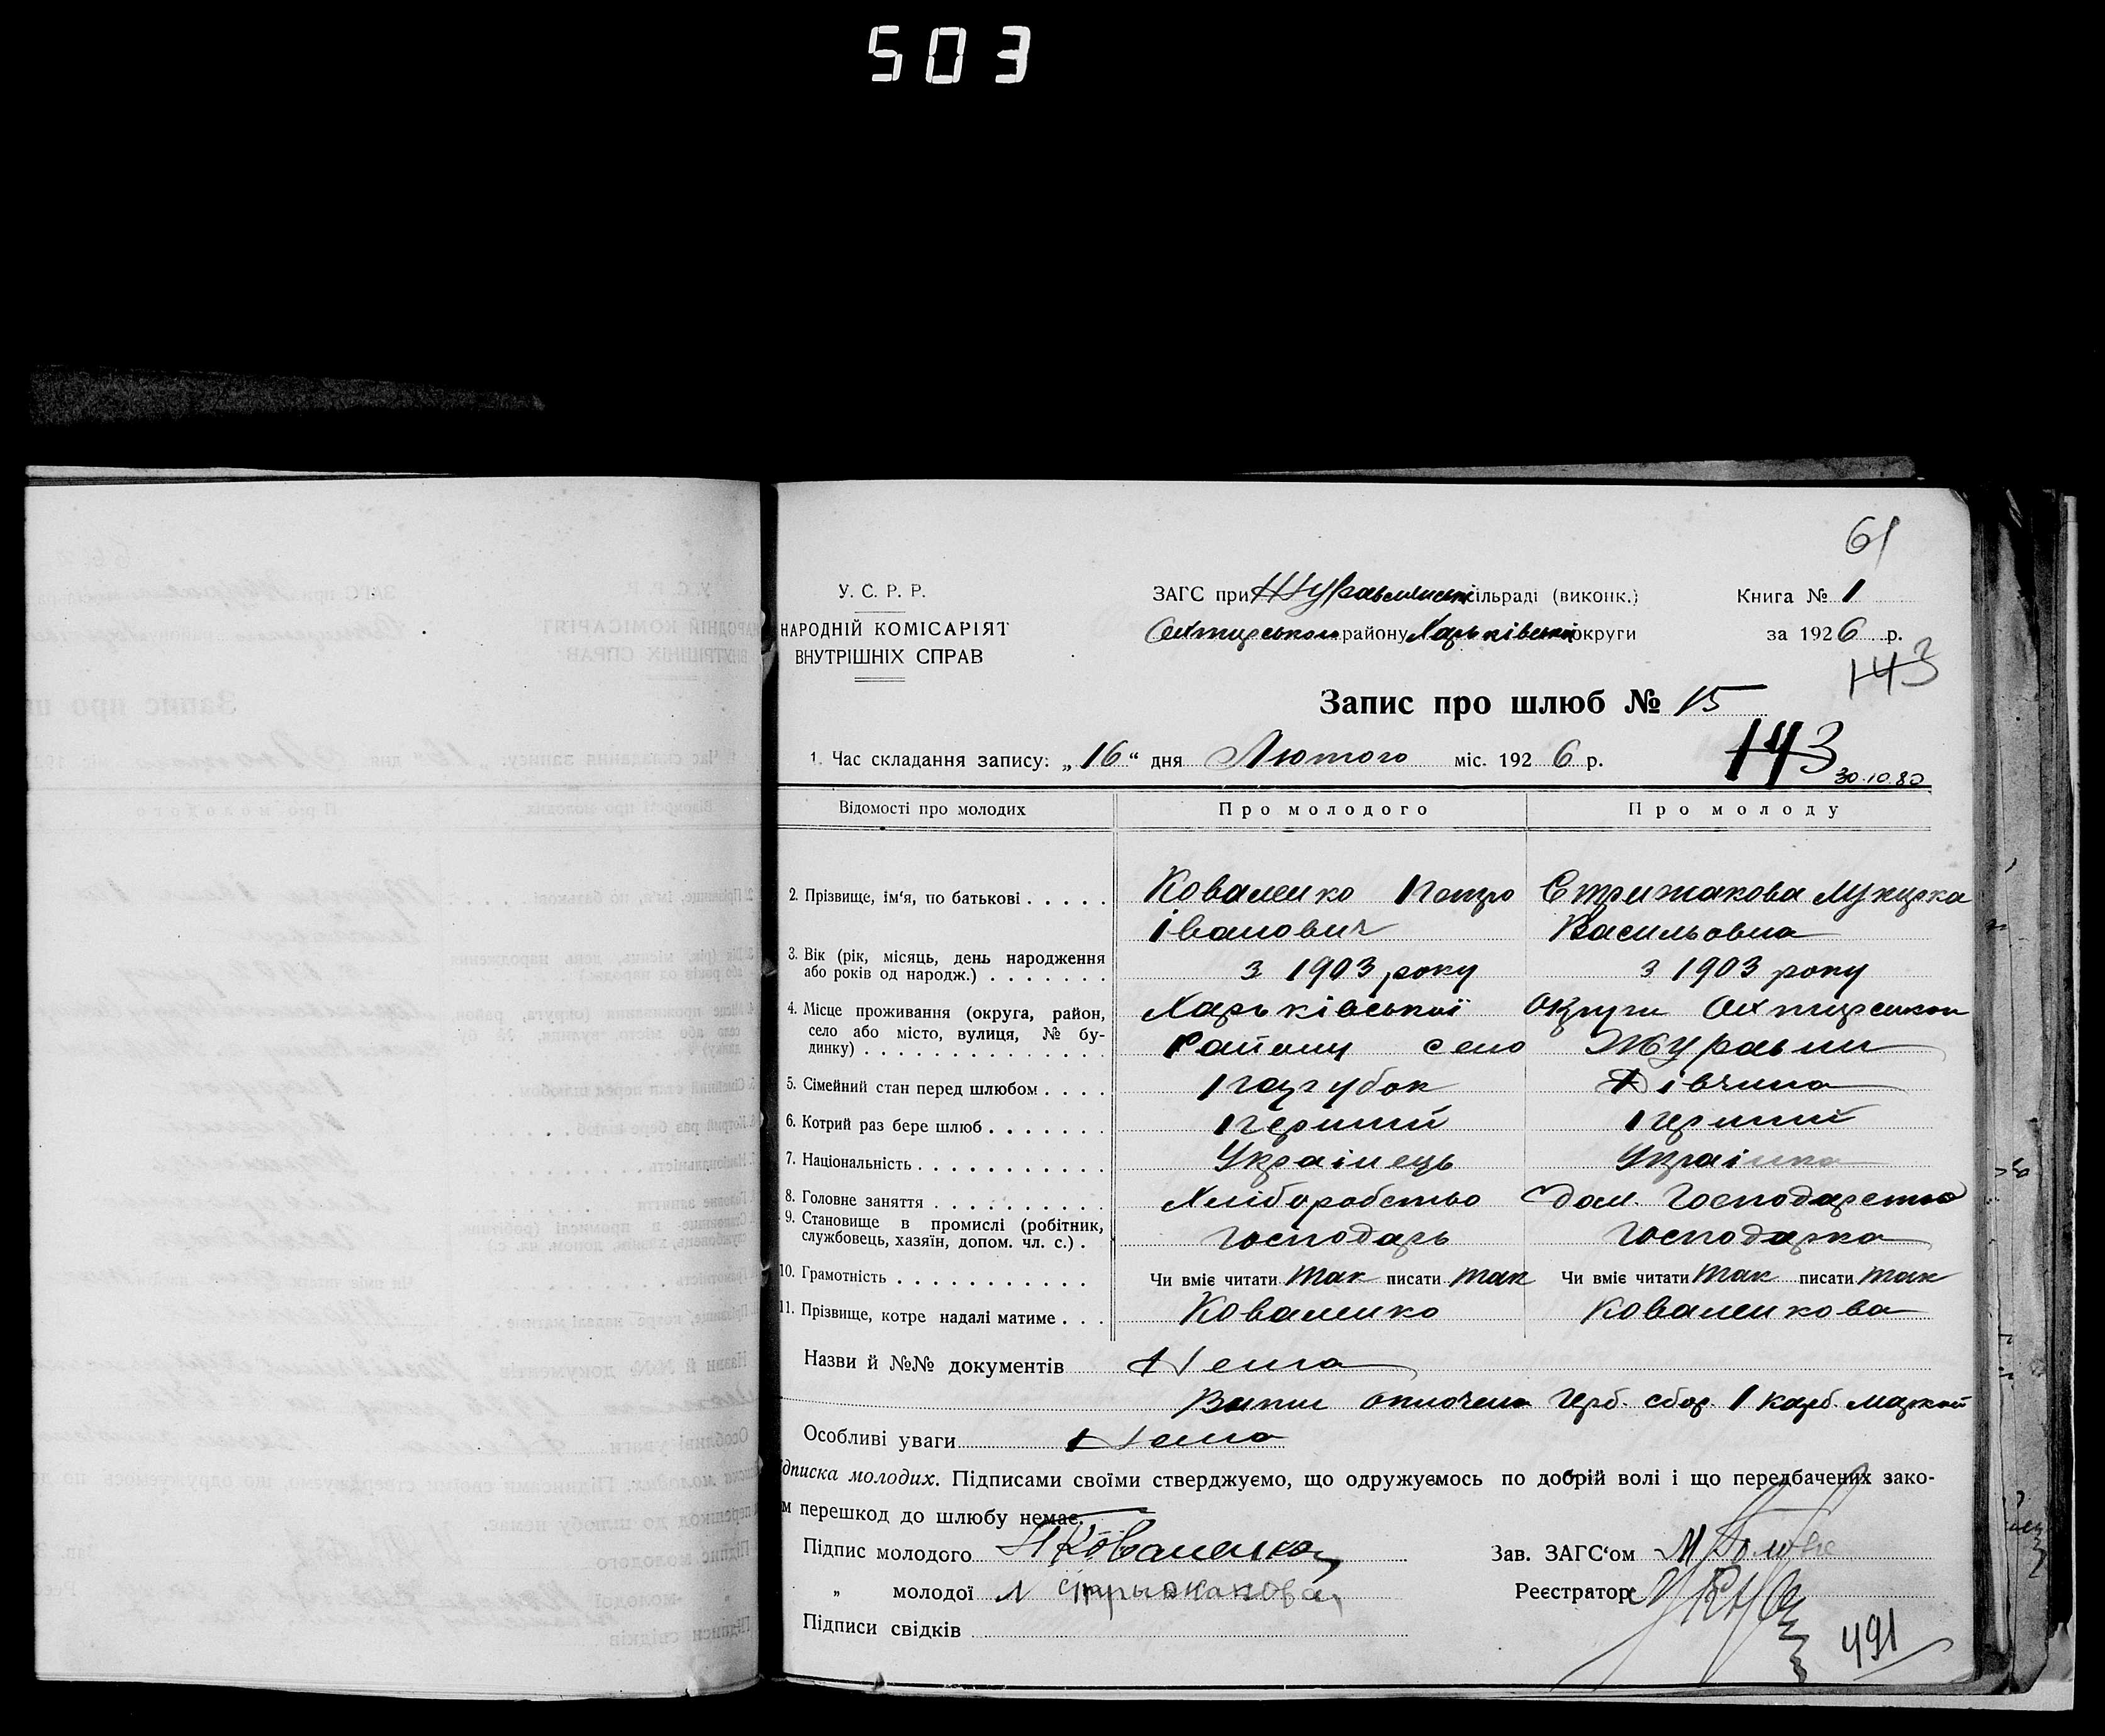 503
61
У. С. Р. Р.
НАРОДНІЙ КОМІСАРІЯТ
ВНУТРІШНІХ СПРАВ
ЗАГС при Журавлянськ сільраді (виконк.)
Охтирськои району Харьківськоі округи
Книга № 1
за 1926 р.
143
Запис про шлюб № 15
143
30.10.80
1. Час складання запису: „16“ дня Лютого міс. 1926 р.
Відомості про молодих Про молодого Про молоду
2. Прізвище, ім‘я, по батькові . . . . . Коваленко Петро Стрижакова Лукирка
Іванович Васильовна
3. Вік (рік, місяць, день народження
або років од народж.) . . . . . . . з 1903 року з 1903 року
4. Місце проживання (округа, район, Харьківськоі округи Охтирськои
село або місто, вулиця, № бу-
динку) . . . . . . . . . . . . . . Району село Журавли
5. Сімейний стан перед шлюбом . . . . Парубок Дівчина
6. Котрий раз бере шлюб . . . . . . . Перший Перший
7. Національність . . . . . . . . . . . Українець Українка
8. Головне заняття . . . . . . . . . . Хліборобство Дом. Господарство
9. Становище в промислі (робітник,
службовець, хазяїн, допом. чл. с.) . Господарь Господарка
10. Грамотність . . . . . . . . . . . Чи вміє читати так писати так Чи вміє читати так писати так
11. Прізвище, котре надалі матиме . . . Коваленко Коваленкова
Назви й №№ документів Нема
Випис оплочена Герб. сбор. 1 карб. маркой
Особливі уваги Нема
ідписка молодих. Підписами своїми стверджуємо, що одружуємось по добрій волі і що передбачених зако-
м перешкод до шлюбу немає.
Підпис молодого П Коваленко Зав. ЗАГС‘ом
„ молодої Л Стрыжакова Реєстратор
Підписи свідків
491